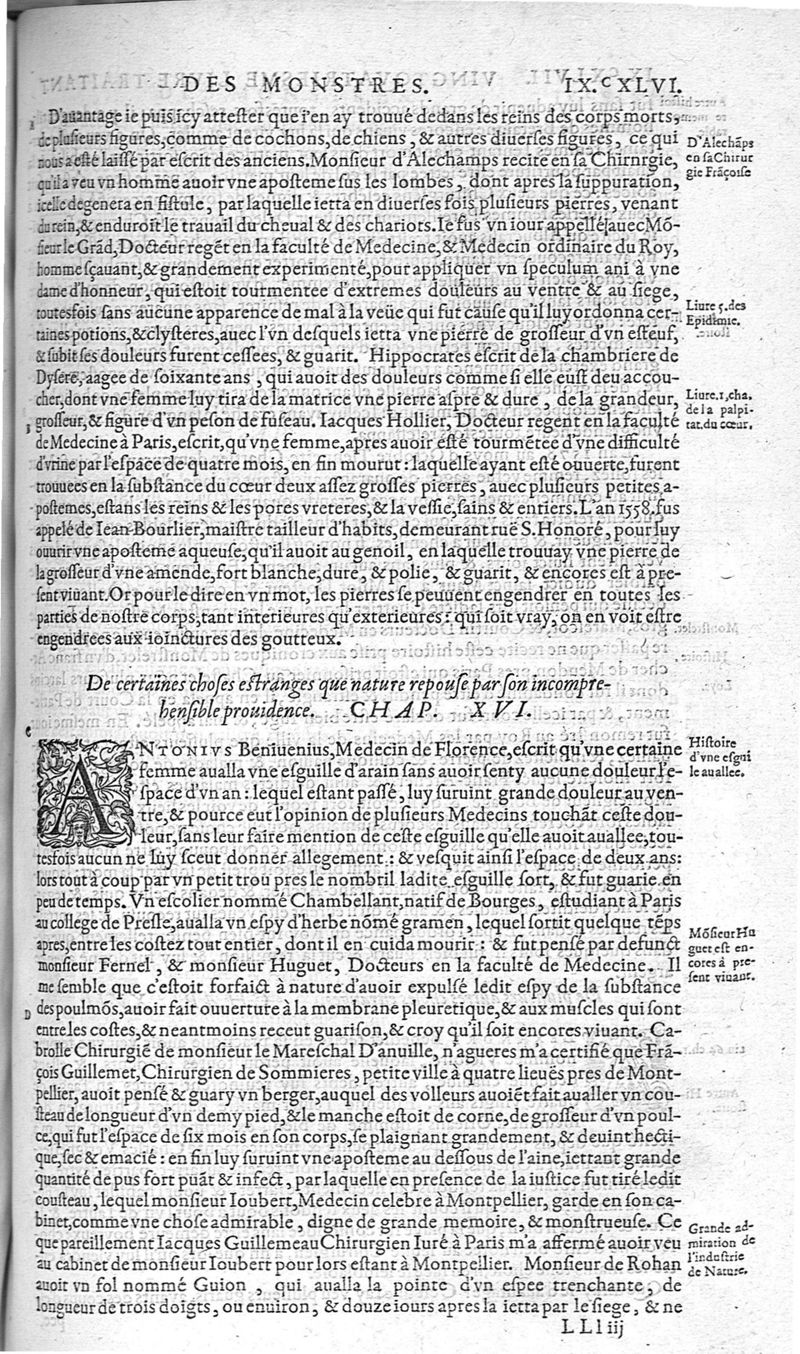 DES MONSTRES. IX.ᶜXLVI.
D'auantage ie puis icy attester que i'en ay trouué dedans les reins des corps morts,
de plusieurs figures, comme de cochons, de chiens, & autres diuerses figures, ce qui
nous a esté laissé par escrit des anciens. Monsieur d'Alechamps recite en sa Chirnrgie,
qu'il a veu vn homme auoir vne aposteme sus les lombes, dont apres la suppuration,
icelle degenera en fistule, par laquelle ietta en diuerses fois plusieurs pierres, venant
du rein, & enduroit le trauail du cheual & des chariots. Ie fus vn iour appellé auec Mõ-
sieur le Grãd, Docteur regẽt en la faculté de Medecine, & Medecin ordinaire du Roy,
homme sçauant, & grandement experimenté, pour appliquer vn speculum ani à vne
dame d'honneur, qui estoit tourmentee d'extremes douleurs au ventre & au siege,
toutesfois sans aucune apparence de mal à la veüe qui fut cause qu'il luy ordonna cer-
taines potions, & clysteres, auec l'vn desquels ietta vne pierre de grosseur d'vn esteuf,
& subit ses douleurs furent cessees, & guarit. Hippocrates escrit de la chambriere de
Dysere, aagee de soixante ans, qui auoit des douleurs comme si elle eust deu accou-
cher, dont vne femme luy tira de la matrice vne pierre aspre & dure, de la grandeur,
grosseur, & figure d'vn peson de fuseau. Iacques Hollier, Docteur regent en la faculté
de Medecine à Paris, escrit, qu'vne femme, apres auoir esté tourmẽtee d'vne difficulté
d'vrine par l'espace de quatre mois, en fin mourut: laquelle ayant esté ouuerte, furent
trouuees en la substance du cœur deux assez grosses pierres, auec plusieurs petites a-
postemes, estans les reins & les pores vreteres, & la vessie, sains & entiers. L'an 1558. fus
appelé de Iean Bourlier, maistre tailleur d'habits, demeurant ruë S. Honoré, pour luy
ouurir vne aposteme aqueuse, qu'il auoit au genoil, en laquelle trouuay vne pierre de
la grosseur d'vne amende, fort blanche, dure, & polie, & guarit, & encores est à pre-
sent viuant. Or pour le dire en vn mot, les pierres se peuuent engendrer en toutes les
parties de nostre corps, tant interieures qu'exterieures: qui soit vray, on en voit estre
engendrees aux ioinctures des goutteux.
D'Alechãps
en sa Chirur
gie Frãçoise
Liure 5. des
Epidémie.
Liure. 1, cha.
de la palpi-
tat. du cœur.
De certaines choses estranges que nature repouse par son incompre-
hensible prouidence. CHAP. XVI.
ANTONIVS Beniuenius, Medecin de Florence, escrit qu'vne certaine
femme aualla vne esguille d'arain sans auoir senty aucune douleur l'e-
space d'vn an: lequel estant passé, luy suruint grande douleur au ven-
tre, & pource eut l'opinion de plusieurs Medecins touchãt ceste dou-
leur, sans leur faire mention de ceste esguille qu'elle auoit auallee, tou-
tesfois aucun ne luy sceut donner allegement: & vesquit ainsi l'espace de deux ans:
lors tout à coup par vn petit trou pres le nombril ladite esguille sort, & fut guarie en
peu de temps. Vn escolier nommé Chambellant, natif de Bourges, estudiant à Paris
au college de Presle, aualla vn espy d'herbe nõmé gramen, lequel sortit quelque tẽps
apres, entre les costez tout entier, dont il en cuida mourir: & fut pensé par defunct
monsieur Fernel, & monsieur Huguet, Docteurs en la faculté de Medecine. Il
me semble que c'estoit forfaict à nature d'auoir expulsé ledit espy de la substance
des poulmõs, auoir fait ouuerture à la membrane pleuretique, & aux muscles qui sont
entre les costes, & neantmoins receut guarison, & croy qu'il soit encores viuant. Ca-
brolle Chirurgiẽ de monsieur le Mareschal D'anuille, n'agueres m'a certifié que Frã-
çois Guillemet, Chirurgien de Sommieres, petite ville à quatre lieuës pres de Mont-
pellier, auoit pensé & guary vn berger, auquel des volleurs auoiẽt fait aualler vn cou-
steau de longueur d'vn demy pied, & le manche estoit de corne, de grosseur d'vn poul-
ce, qui fut l'espace de six mois en son corps, se plaignant grandement, & deuint hecti-
que, sec & emacié: en fin luy suruint vne aposteme au dessous de l'aine, iettant grande
quantité de pus fort puãt & infect, par laquelle en presence de la iustice fut tiré ledit
cousteau, lequel monsieur Ioubert, Medecin celebre à Montpellier, garde en son ca-
binet, comme vne chose admirable, digne de grande memoire, & monstrueuse. Ce
que pareillement Iacques Guillemeau Chirurgien Iuré à Paris m'a affermé auoir veu
au cabinet de monsieur Ioubert pour lors estant à Montpellier. Monsieur de Rohan
auoit vn fol nommé Guion, qui aualla la pointe d'vn espee trenchante, de
longueur de trois doigts, ou enuiron, & douze iours apres la ietta par le siege, & ne
Histoire
d'vne esgui
le auallee.
Mõsieur Hu
guet est en-
cores à pre-
sent viuant.
Grande ad-
miration de
l'industrie
de Nature.
LLl iij